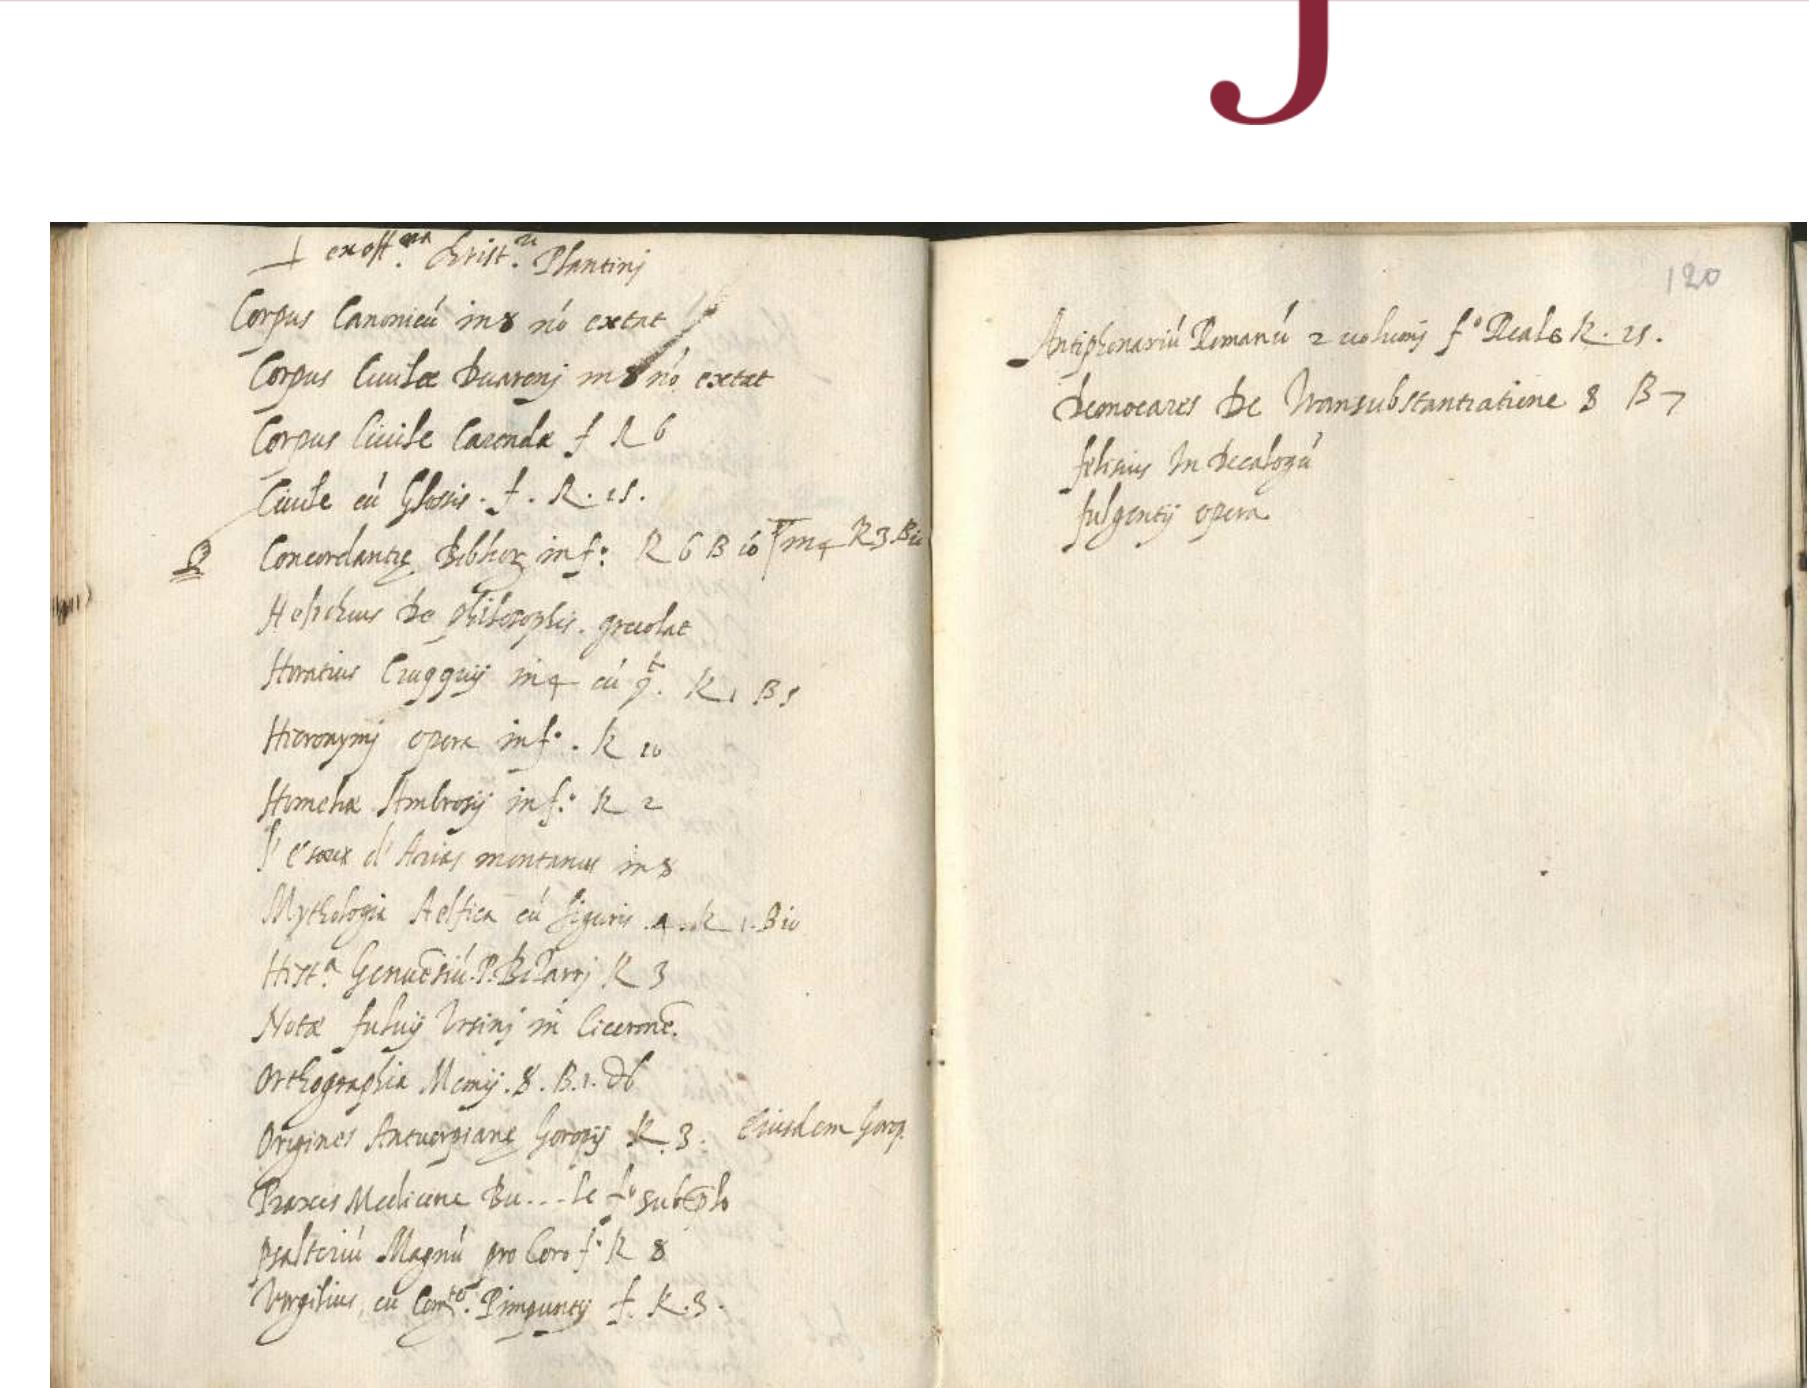 J
ex off.na Christ.ri Plantinj
Corpus Canonicú in 8 nó extat
Corpus Ciuile Duarenj in 8 nó extat
Corpus Ciuile f R 6
Ciuile cú Glossis. f. R. 25.
Concordantię Biblior in f.o R 6 B 10 in 4 R 3 B 10
Hesichius De philosophis. grecolat
Horatius Cruqquij in 4 cú R 1 B 5
Hieronymj opera in f.o R 10
Homelia Ambrosij in f.o R 2
d' Arias montanus in 8
Mythologia Aesica cú figuris. 4. R 1. B 10
Hist.a Genuēsiú. P. Bizarrj R 3
Notæ fuluij Vrsinj in Ciceronē.
Orthographia Menij. 8. B. 1. d6
Origines Antuerpianę Goropij R. 3. Eiusdem Gorop.
Praxis Medicine Bu...le f.o sub
psalteriú Magnú pro Coro f.o R 8
Vergilius cu Com.to Pimpuntij f. R. 3.
120
Antiphonariú Romanú 2 uolumj f.o Reale R. 25.
Democares De Transubstantiatione 8 B 7
felisius In Decalogú
fulgentij opera